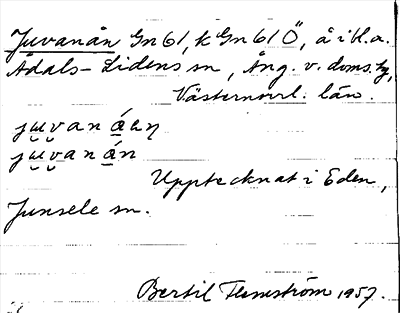 Juvanån Gn 61, k Gn 61 Ö, å i bl.a.
Ådals-Lidens sn, Ång. v. doms.
Västernorrl. län.
juvanán
juvanán
Upptecknat i Eden,
Junsele sn.
Bertil Flemström 1957.